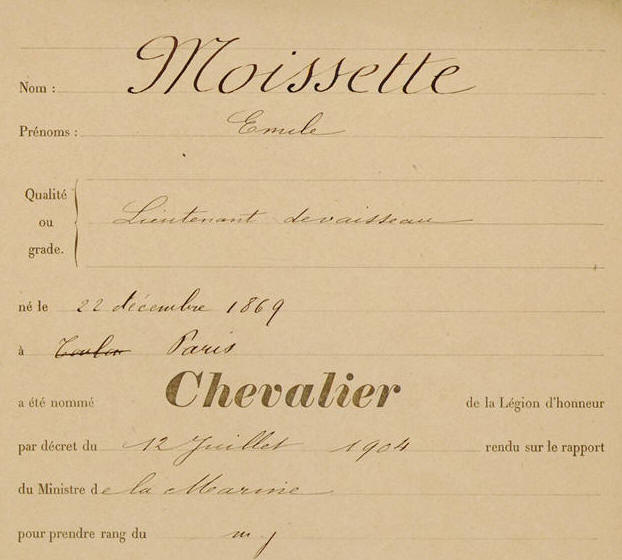 Nom : Moissette
Prénoms : Emile
Qualité
ou Lieutenant de vaisseau
grade.
né le 22 décembre 1869
à Toulon Paris
a été nommé Chevalier de la Légion d'honneur
par décret du 12 Juillet 1904 rendu sur le rapport
du Ministre de la Marine
pour prendre rang du m j